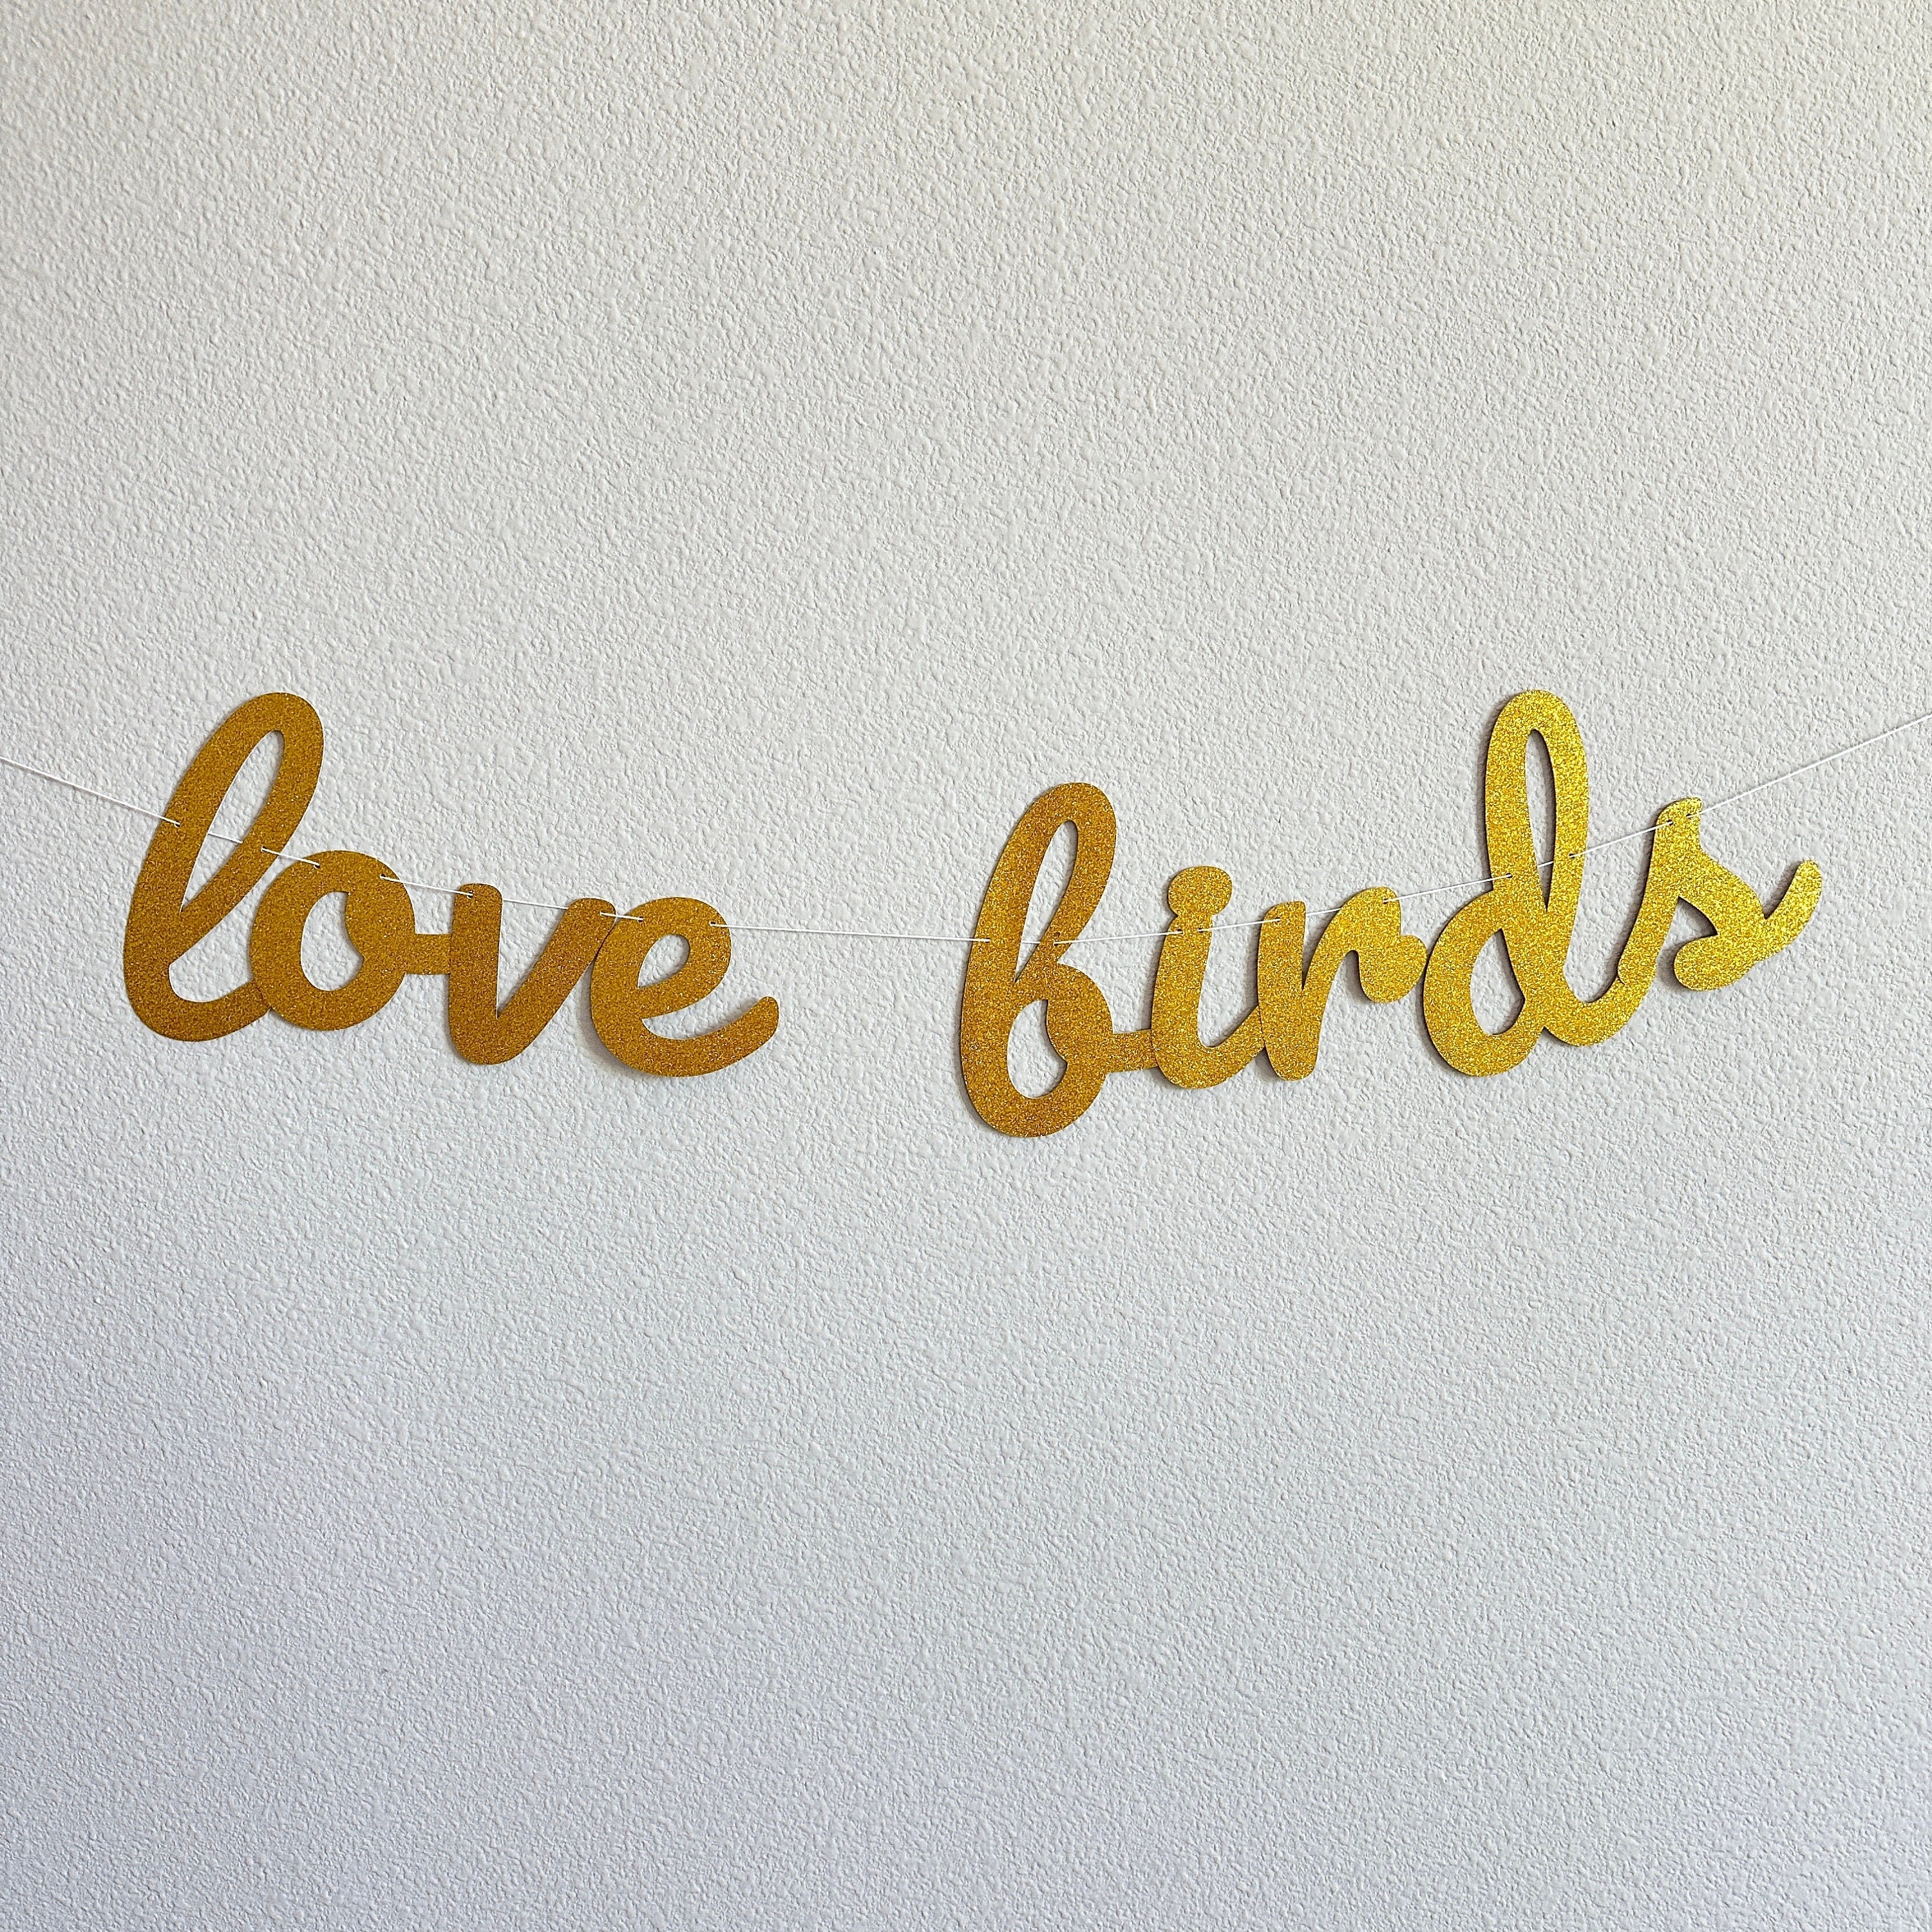 love birds